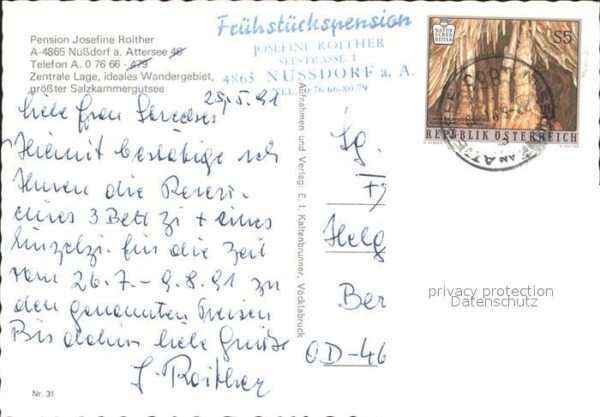 Pension Josefine Roither
A-4865 Nußdorf a. Attersee 46
Telefon A. 0 76 66 - 479
Zentrale Lage, ideales Wandergebiet,
größter Salzkammergutsee
Frühstückspension
JOSEFINE ROITHER
SEESTRASSE 1
4865 NUSSDORF a. A.
TEL. 0 76 66-80 79
25.5.91
liebe Frau
Hiermit bestätige ich
Ihnen die Reser.
eines 3 Bett zi + eines
Einzelzi. für die Zeit
vom 26.7.-9.8.91 zu
den genannten Preisen
Bis dahin liebe Grüße
J. Roither
Nr. 31
Aufnahmen und Verlag: E. I. Kaltenbrunner, Vöcklabruck
NATUR
SCHÖN
HEITEN
S5
REPUBLIK ÖSTERREICH
Helg
Ber
OD-46
privacy protection
Datenschutz